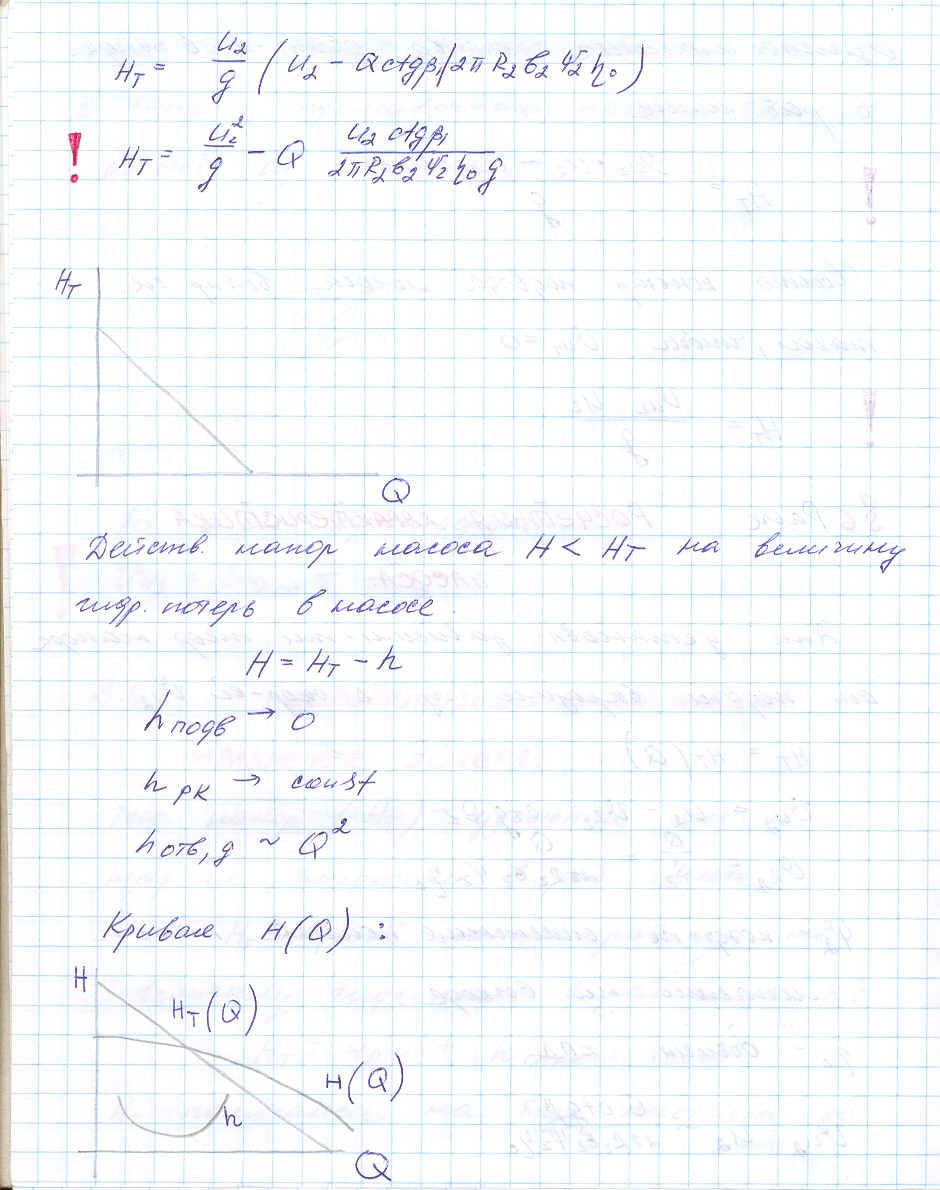 H_T = u_2/g (u_2 - Q ctgβ_1 | 2πR_2 b_2 Ψ_2 η_0)
! H_T = u_2^2/g - Q u_2 ctgβ_1 / 2πR_2 b_2 Ψ_2 η_0 g
H_T
Q
Действ. напор насоса H < H_T на величину
гидр. потерь в насосе.
H = H_T - h
h подв → 0
h РК → const
h отв, д ~ Q^2
Кривая H(Q):
H
H_T(Q)
H(Q)
h
Q